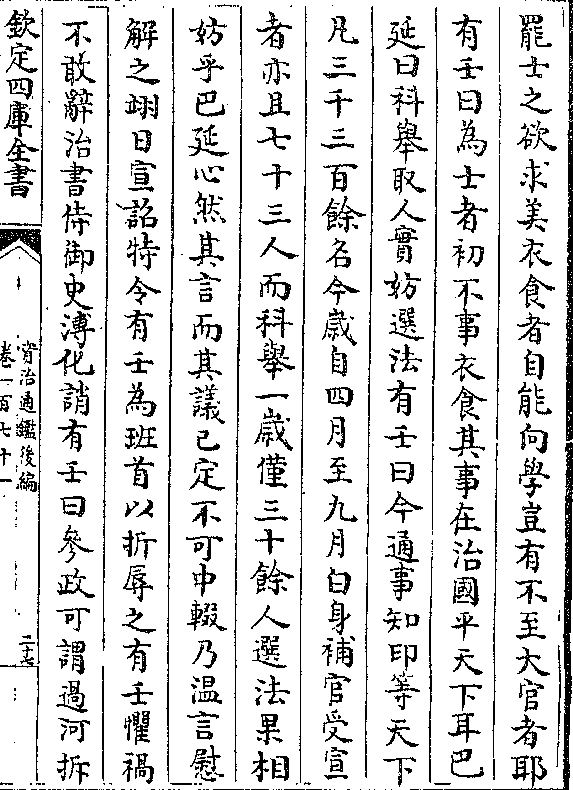 罷士之欲求美衣食者自能向學豈有不至大官者耶
有壬曰為士者初不事衣食其事在治國平天下耳巴
延曰科舉取人實妨選法有壬曰今通事知印等天下
凡三千三百餘名今歲自四月至九月白身補官受宣
者亦且七十三人而科舉一歲僅三十餘人選法果相
妨乎巴延心然其言而其議已定不可中輟乃温言慰
解之翊日宣詔特令有壬為班首以折辱之有壬懼禍
不敢辭治書侍御史溥化誚有壬曰參政可謂過河拆
欽定四庫全書
資治通鑑後編
卷一百七十一
二十七